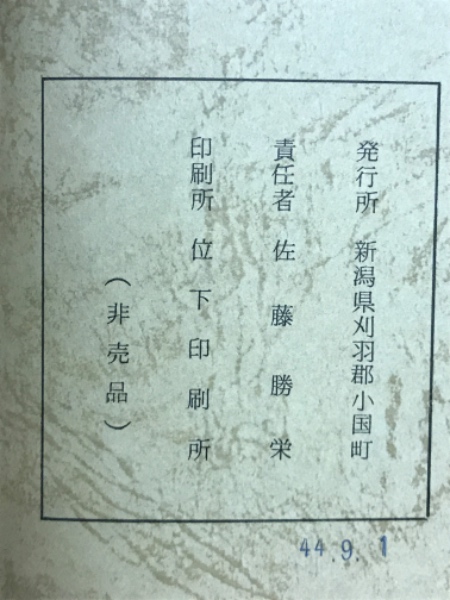 発行所 新潟県刈羽郡小国町
責任者 佐藤勝栄
印刷所 位下印刷所
（非売品）
44.9.1